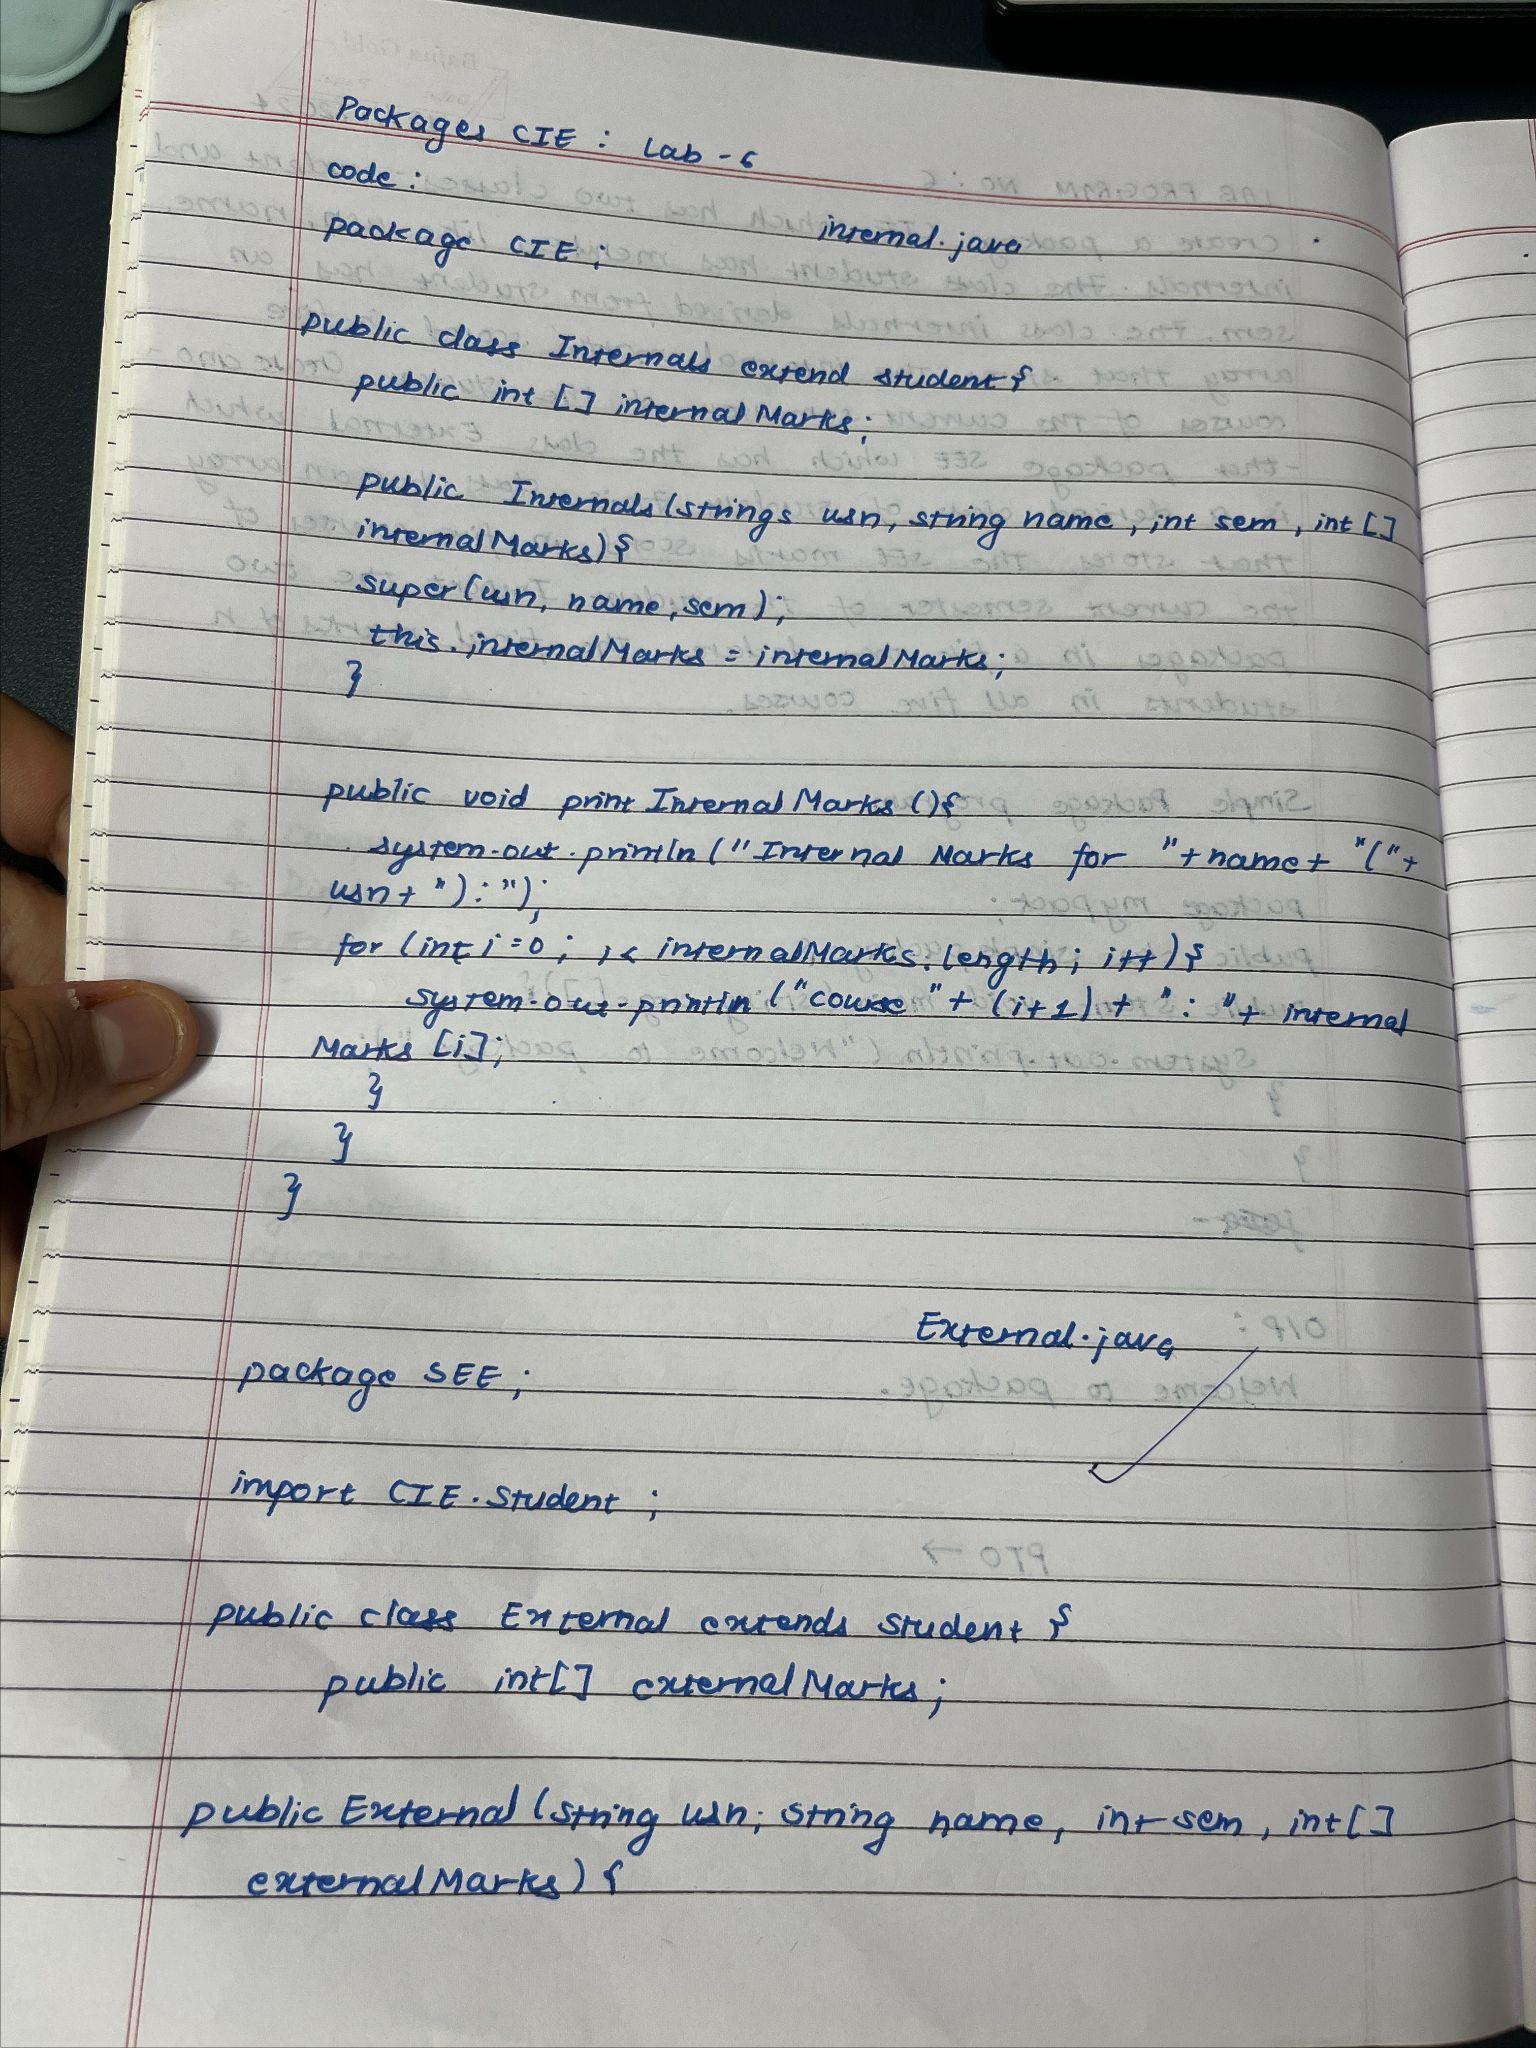 Packages CIE : Lab - 6
code :
internal.java
package CIE ;
public class Internals extend student {
public int [] internalMarks ;
public Internals (strings usn, string name, int sem, int []
internalMarks) {
super (usn, name, sem) ;
this.internalMarks = internalMarks ;
}
public void print InternalMarks () {
system.out.println ("Internal Marks for "+name+ "("+
usn+ ") : ") ;
for (int i = 0 ; i < internalMarks.length ; i++) {
system.out.println ("course "+ (i+1) + " : "+ internal
Marks [i] ;
}
}
}
External.java
package SEE ;
import CIE.Student ;
public class External extends Student {
public int[] externalMarks ;
public External (string usn; string name, int sem, int[]
externalMarks) {